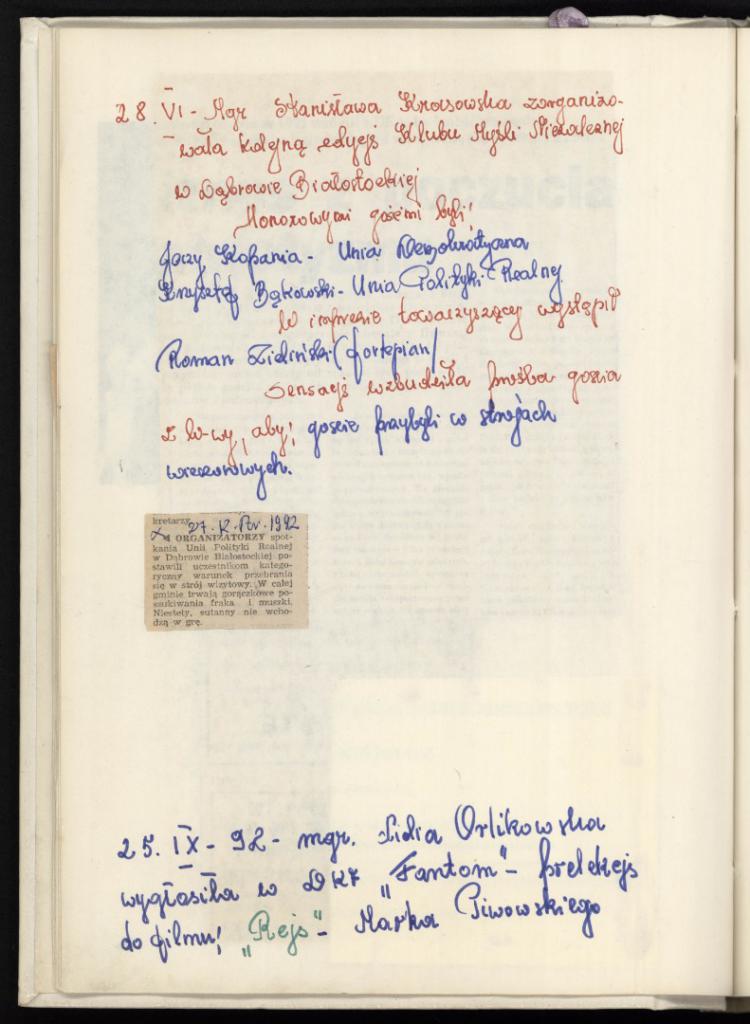 28. VI - Mgr Stanisława Krasowska zorganizo-
wała kolejną edycję Klubu Myśli Niezależnej
w Dąbrowie Białostockiej
Honorowymi gośćmi byli!
Jerzy Kopania - Unia Demokratyczna
Krzysztof Bąkowski - Unia Polityki Realnej
W imprezie towarzyszącej wystąpił
Roman Zieliński (fortepian)
Sensację wzbudziła prośba gościa
z W-wy, aby! goście przybyli w strojach
wieczorowych.
kretarzy.
27. K. Por. 1992
ORGANIZATORZY spot-
kania Unii Polityki Realnej
w Dąbrowie Białostockiej po-
stawili uczestnikom katego-
ryczny warunek przebrania
się w strój wizytowy. W całej
gminie trwają gorączkowe po-
szukiwania fraka i muszki.
Niestety, sutanny nie wcho-
dzą w grę.
25. IX - 92 - mgr. Lidia Orlikowska
wygłosiła w DKF „Fantom" - prelekcję
do filmu! „Rejs" - Marka Piwowskiego